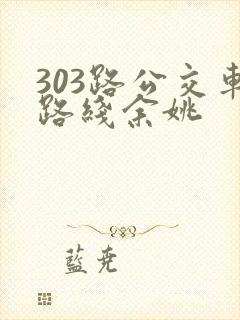 303路公交車
路綫余姚
藍堯